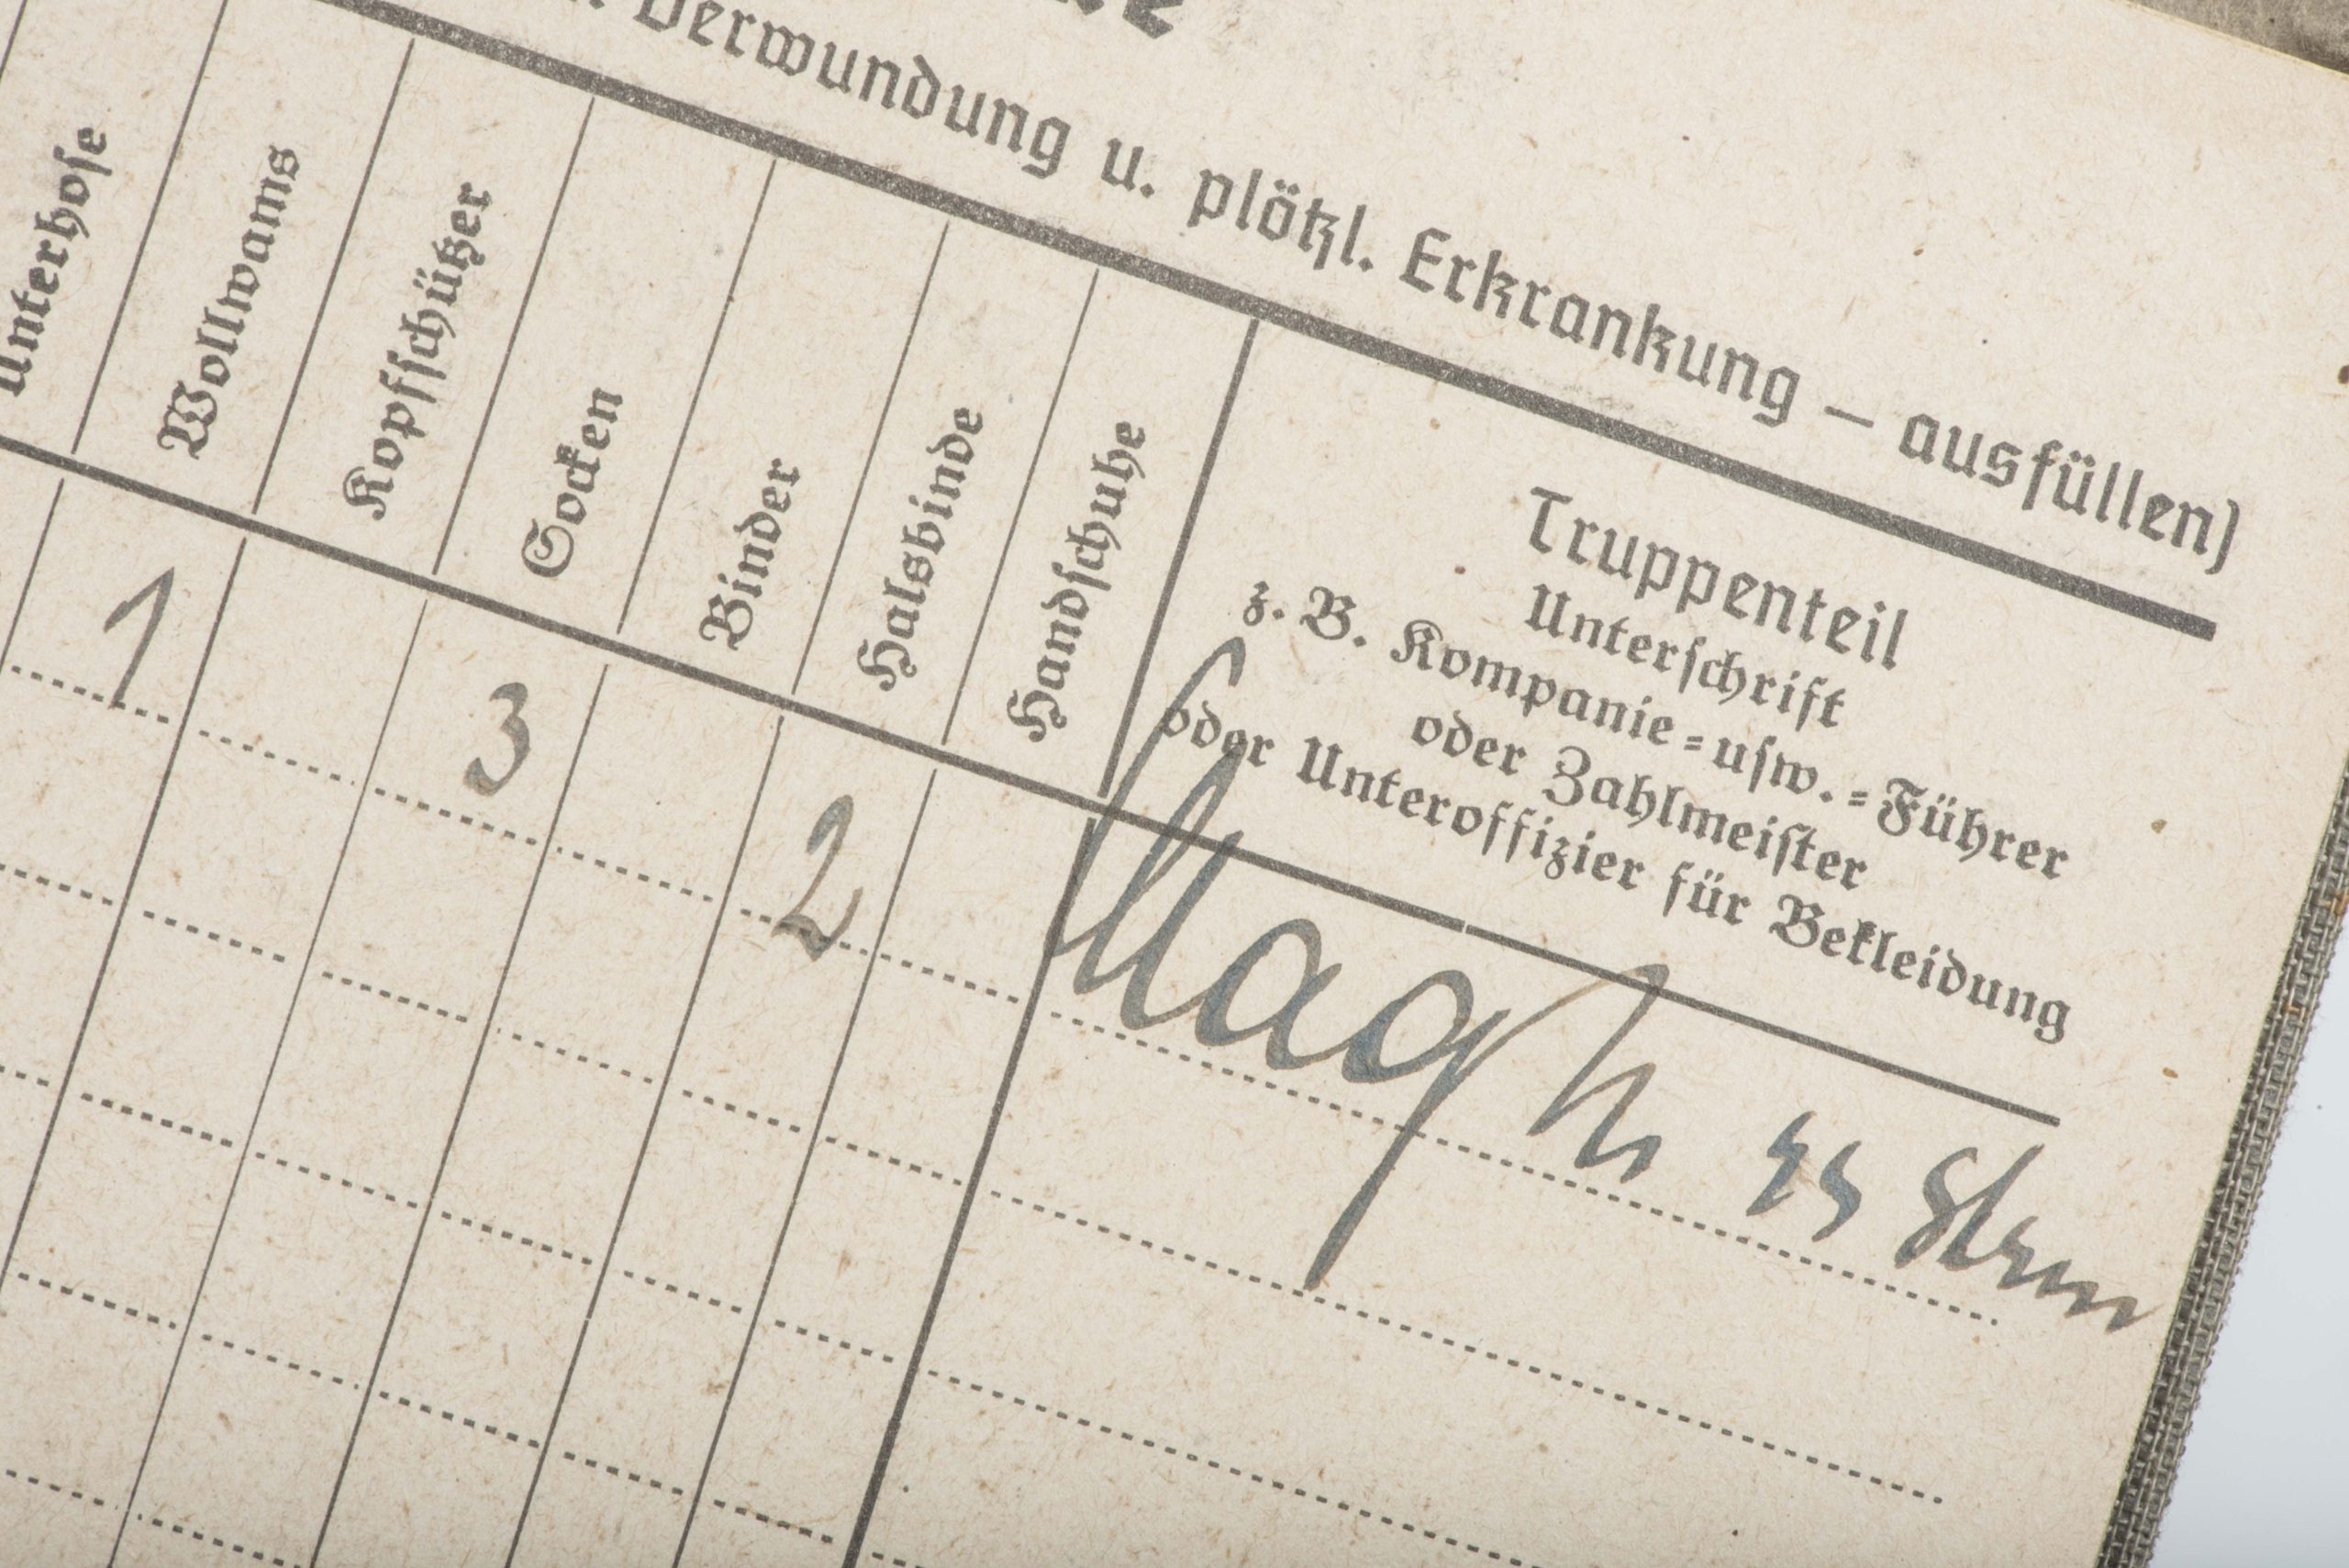 Verwundung u. plötzl. Erkrankung — ausfüllen)
Unterhose
Wollwams
Kopfschützer
Socken
Binder
Halsbinde
Handschuhe
Truppenteil
Unterschrift
z. B. Kompanie=usw.=Führer
oder Zahlmeister
oder Unteroffizier für Bekleidung
1 3 2